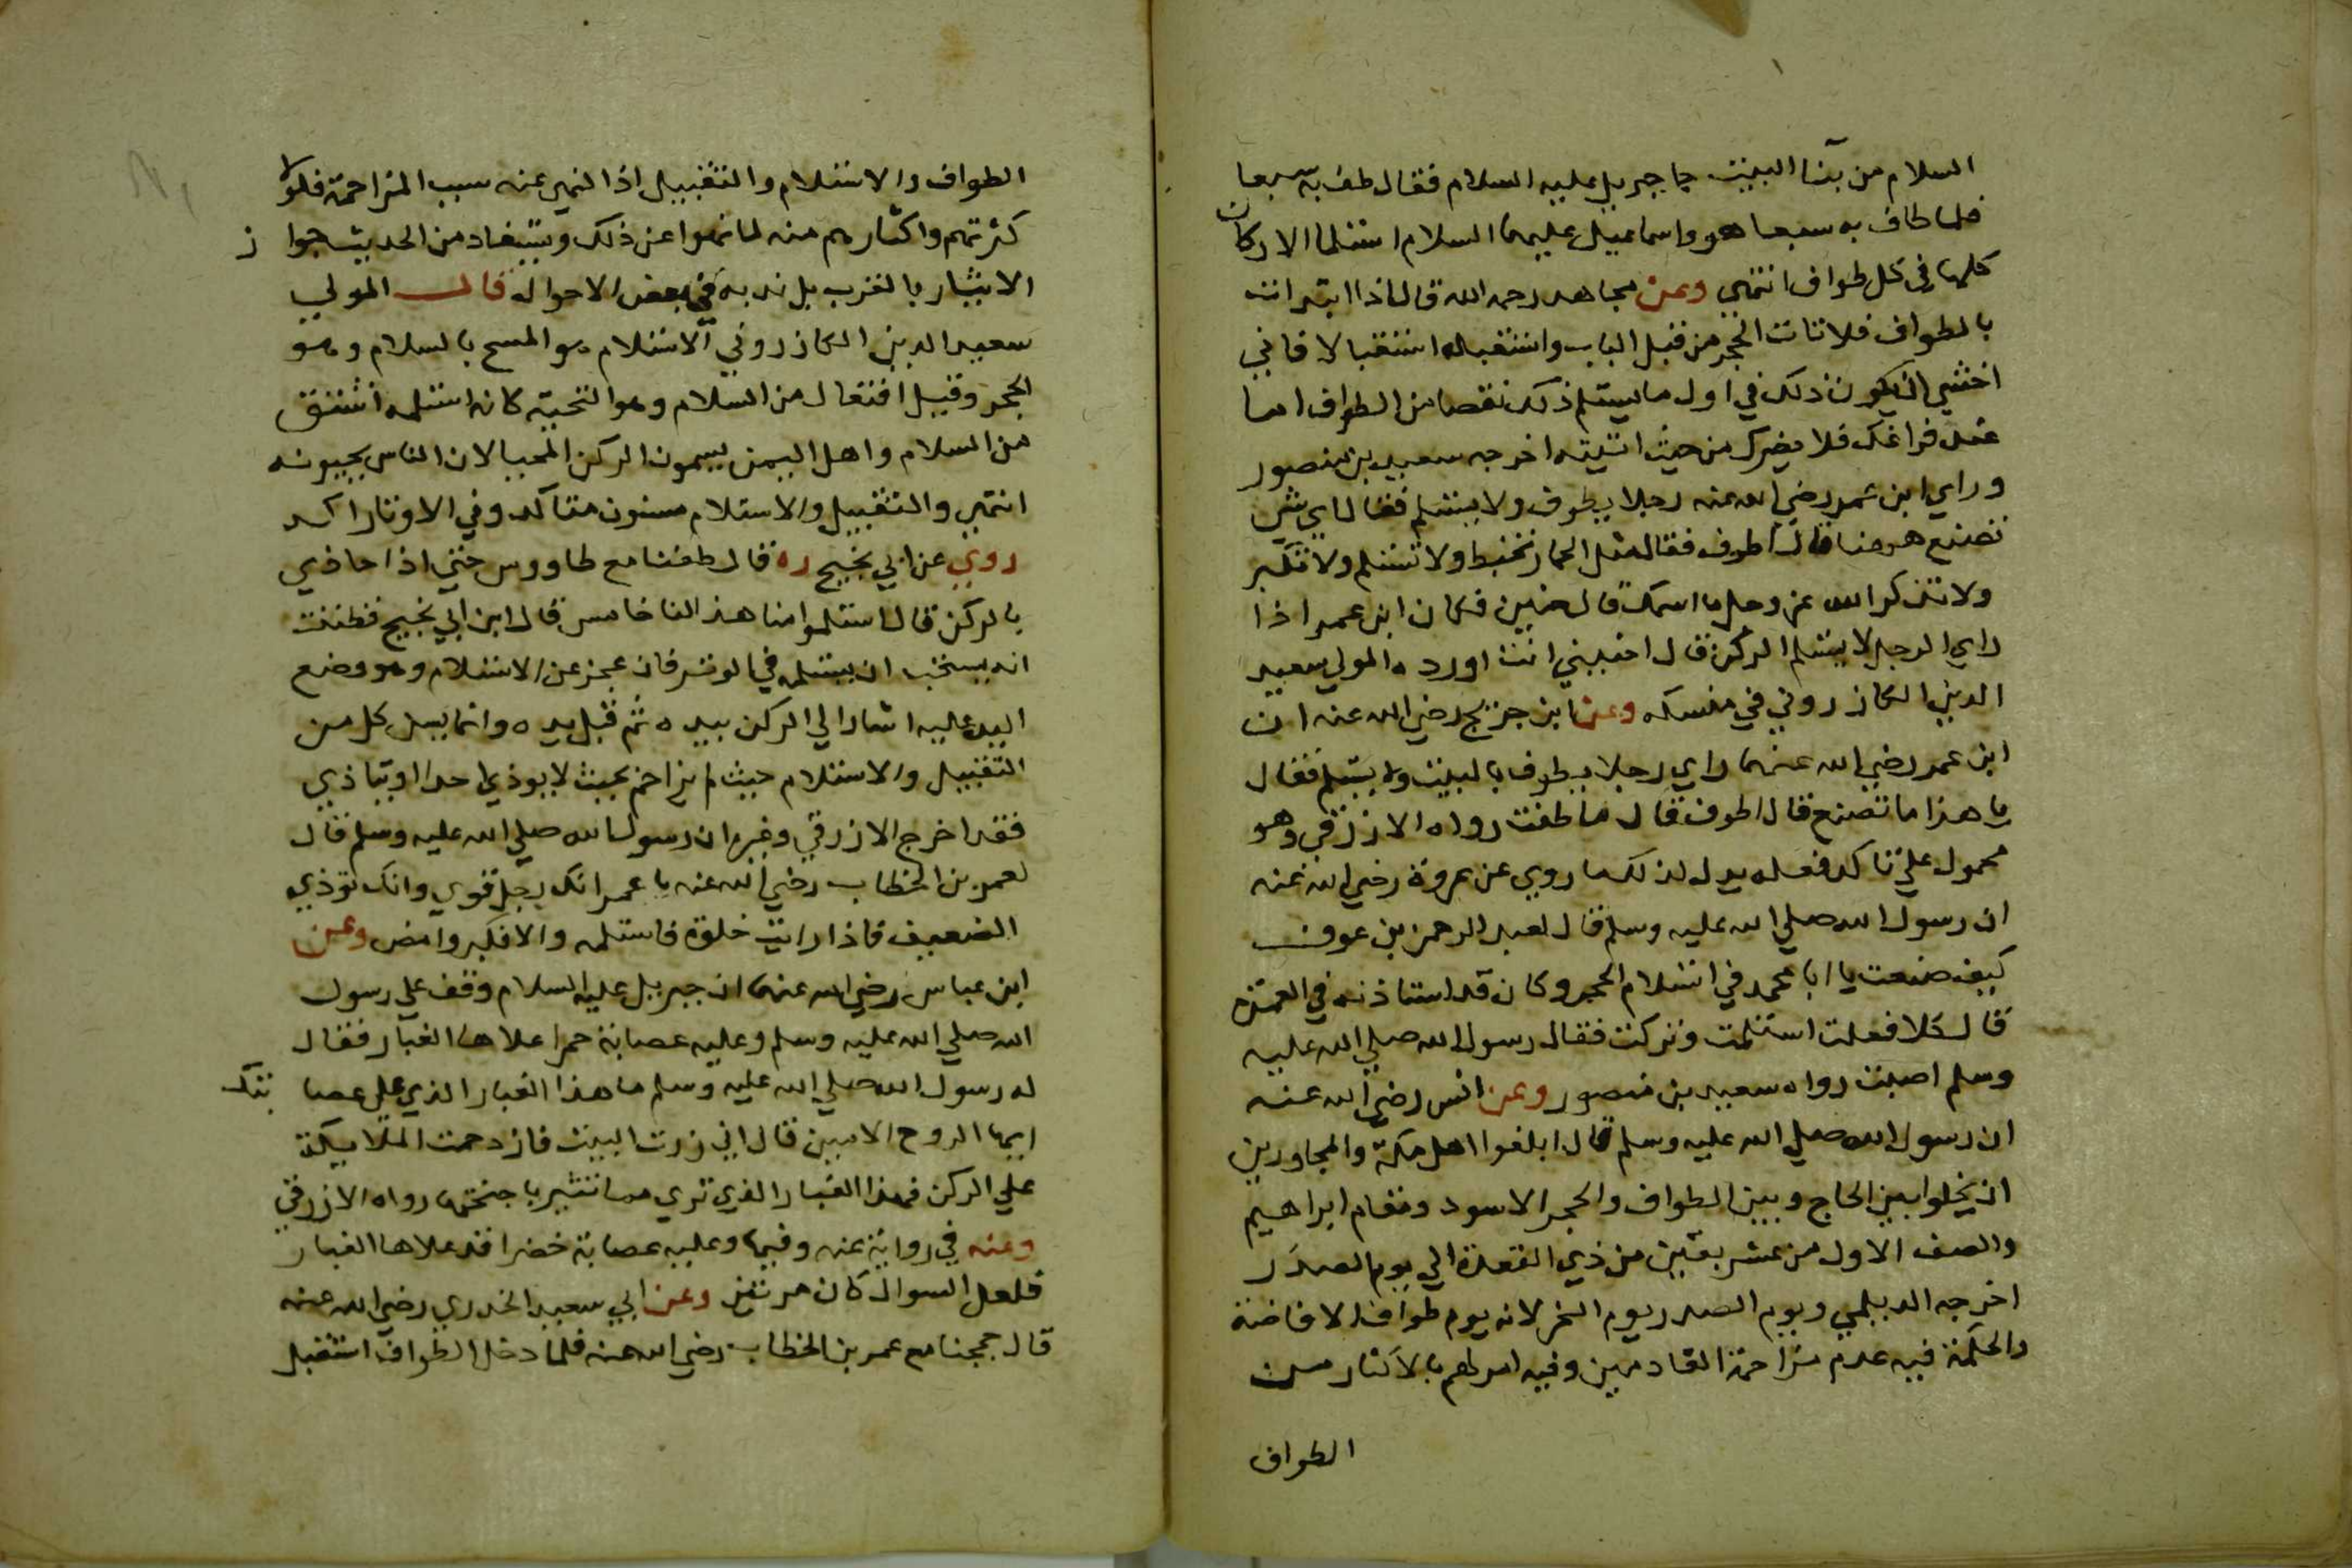 السلام من بنا البيت جا جبريل عليه السلام فقال طف به سبعا
فلما طاف به سبعا هو واسماعيل عليهما السلام استلما الاركان
كلها في كل طواف انتهي وعن مجاهد رحمه الله قال اذا ابتدات
بالطواف فلا تات الحجر من قبل الباب واستقبله استقبالا فاني
اخشي ان يكون ذلك في اول ما يستلم ذلك نقصا من الطواف اما
عند فراغك فلا يضرك من حيث اتيته اخرجه سعيد بن منصور
وراي ابن عمر رضي الله عنه رجلا يطوف ولا يستلم فقال اي شي
تصنع ههنا قال اطوف فقال مثل الحمار تخبط ولا تستلم ولا تكبر
ولا تذكر الله عز وجل ما اسمك قال حنين فكان ابن عمر اذا
راي الرجل لا يستلم الركن قال احنيني انت اورده المولي سعيد
الدين الكازروني في منسكه وعن ابن جريج رضي الله عنه ان
ابن عمر رضي الله عنهما راي رجلا يطوف بالبيت ولا يستلم فقال
يا هذا ما تصنع قال اطوف قال ما طفت رواه الازرقي وهو
محمول علي تاكد فعله يدل لذلك ما روي عن عروة رضي الله عنه
ان رسول الله صلي الله عليه وسلم قال لعبد الرحمن بن عوف
كيف صنعت يا ابا محمد في استلام الحجر وكان قد استاذنه في العمرة
قال كلا فعلت استلمت وتركت فقال رسول الله صلي الله عليه
وسلم اصبت رواه سعيد بن منصور وعن انس رضي الله عنه
ان رسول الله صلي الله عليه وسلم قال ابلغوا اهل مكة والمجاورين
ان يخلوا بين الحاج وبين الطواف والحجر الاسود ومقام ابراهيم
والصف الاول من عشر بقين من ذي القعدة الي يوم الصدر
اخرجه الديلمي ويوم الصدر يوم النحر لانه يوم طواف الافاضة
والحكمة فيه عدم مزاحمة القادمين وفيه امر لهم بالاكثار من
الطواف
الطواف والاستلام والتقبيل اذ النهي عنه سبب المزاحمة فلولا
كثرتهم واكثارهم منه لما نهوا عن ذلك ويستفاد من الحديث جواز
الايثار بالقرب بل ندبه في بعض الاحوال قال المولي
سعيد الدين الكازروني الاستلام هو المسح بالسلام وهو
الحجر وقيل افتعال من السلام وهو التحية كانه استلمه اشتق
من السلام واهل اليمن يسمون الركن المحيا لان الناس يحيونه
انتهي والتقبيل والاستلام مسنون متاكد وفي الاوتار اكد
روي عن ابي نجيح ره قال طفنا مع طاووس حتي اذا حاذي
بالركن قال استلموا منا هذا لنا خامس قال ابن ابي نجيح فظننت
انه يستحب ان يستلمه في الوتر فان عجز عن الاستلام وهو وضع
اليد عليه اشار الي الركن بيده ثم قبل يده وانما يسن كل من
التقبيل والاستلام حيث لم يزاحم بحيث لا يوذي احدا او يتاذي
فقد اخرج الازرقي وغيره ان رسول الله صلي الله عليه وسلم قال
لعمر بن الخطاب رضي الله عنه يا عمر انك رجل قوي وانك توذي
الضعيف فاذا رايت خلوة فاستلمه والا فكبر وامض وعن
ابن عباس رضي الله عنهما ان جبريل عليه السلام وقف علي رسول
الله صلي الله عليه وسلم وعليه عصابة حمرا علاها الغبار فقال
له رسول الله صلي الله عليه وسلم ما هذا الغبار الذي علي عصابتك
ايها الروح الامين قال اني زرت البيت فازدحمت الملايكة
علي الركن فهذا الغبار الذي تري مما تثير باجنحتها رواه الازرقي
وعنه في رواية عنه وفيها وعليه عصابة خضرا قد علاها الغبار
فلعل السوال كان مرتين وعن ابي سعيد الخدري رضي الله عنه
قال حججنا مع عمر بن الخطاب رضي الله عنه فلما دخل الطواف استقبل